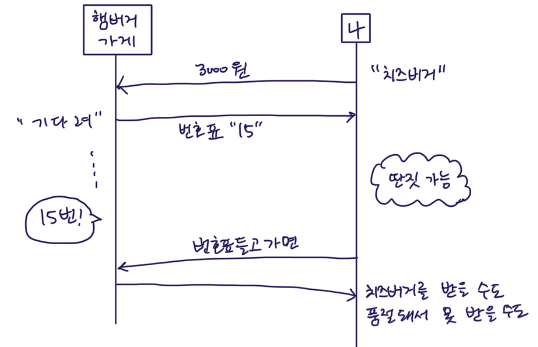 햄버거
가게
나
3000원
"치즈버거"
"기다려"
번호표 "15"
딴짓 가능
15번!
번호표들고가면
치즈버거를 받을 수도
품절돼서 못 받을 수도